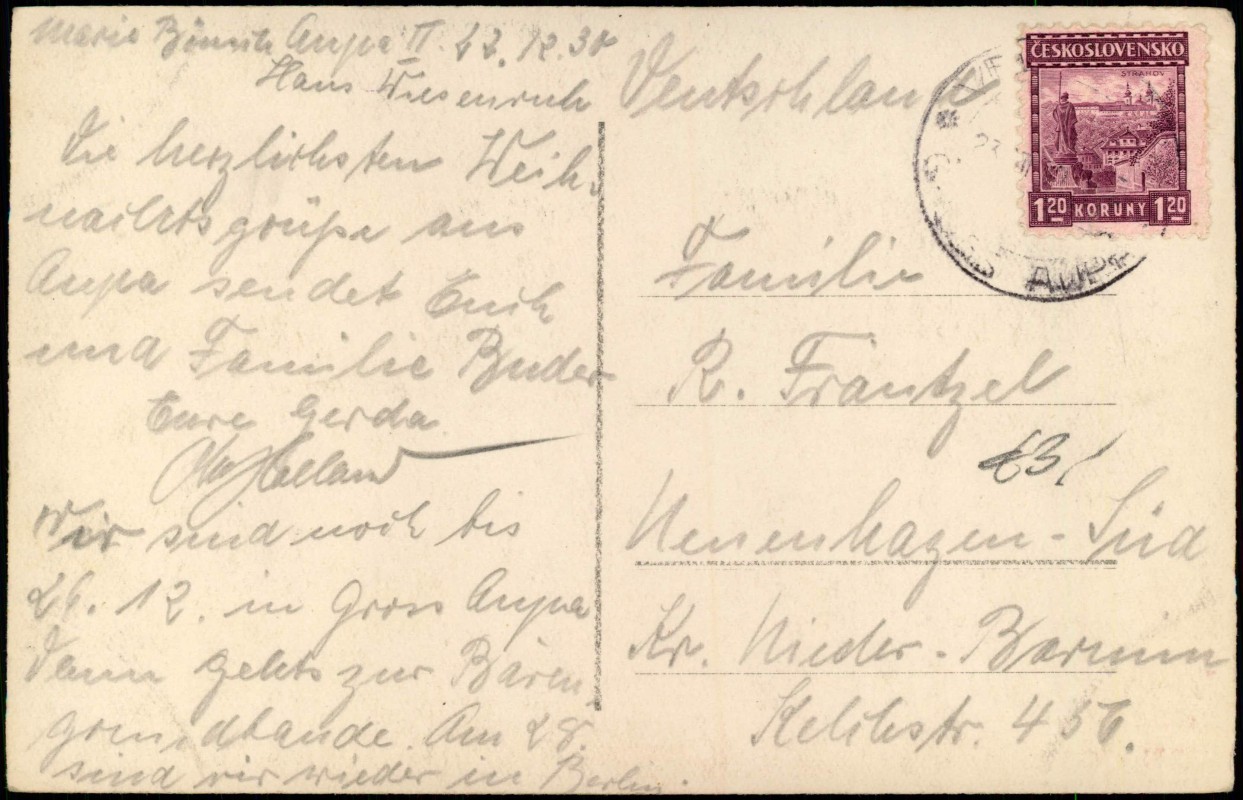 Marie Bönsch Aupa II 23.12.30
Haus Wiesenruh
Die herzlichsten Weih-
nachtsgrüße aus
Aupa sendet Euch
und Familie Buder
Eure Gerda
Wir sind noch bis
26.12. in Gross Aupa
Dann gehts zur Bären-
grundbaude. Am 28.
sind wir wieder in Berlin.
Deutschland
ČESKOSLOVENSKO
STRAHOV
1 20 KORUNY 1 20
AUPA
Familie
R. Fräntzel
Neuenhagen-Süd
Kr. Nieder-Barnim
456.